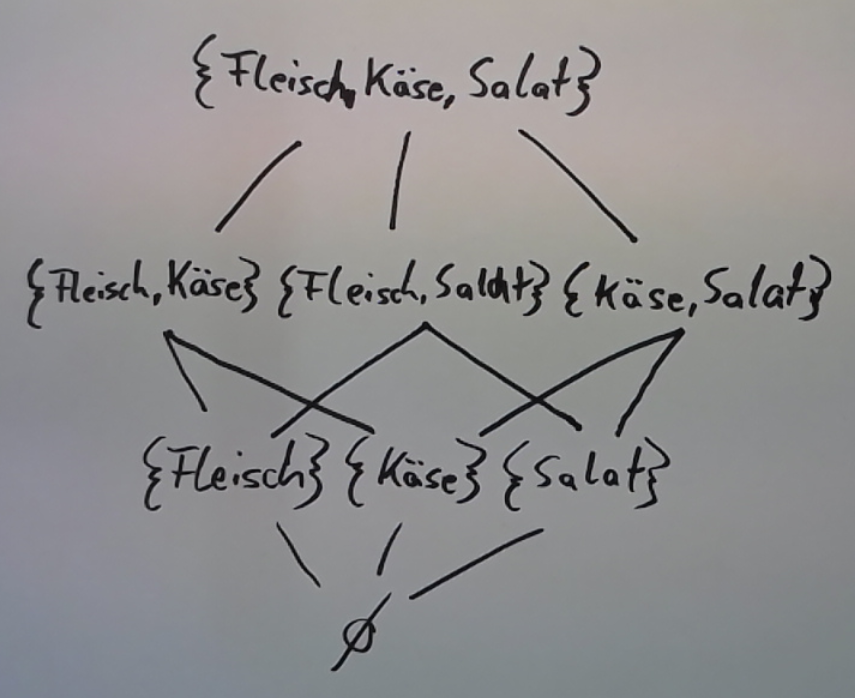 {Fleisch, Käse, Salat}
{Fleisch, Käse} {Fleisch, Salat} {Käse, Salat}
{Fleisch} {Käse} {Salat}
∅